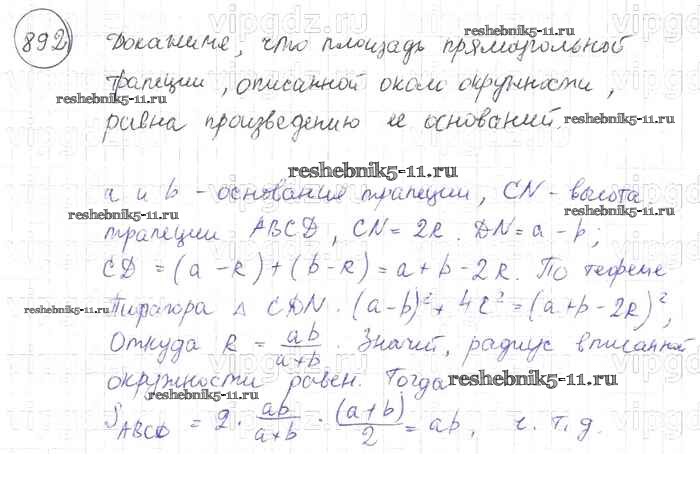 892
Докажите, что площадь прямоугольной
трапеции, описанной около окружности,
равна произведению ее оснований.
a и b - основания трапеции, CN - высота
трапеции ABCD, CN = 2R. DN = a - b;
CD = (a - R) + (b - R) = a + b - 2R. По теореме
Пифагора Δ CDN. (a-b)² + 4r² = (a+b-2R)²,
Откуда R = ab/(a+b). Значит, радиус вписанной
окружности равен. Тогда
S_ABCD = 2 · ab/(a+b) · (a+b)/2 = ab, ч. т. д.
reshebnik5-11.ru
reshebnik5-11.ru
reshebnik5-11.ru
reshebnik5-11.ru
reshebnik5-11.ru
reshebnik5-11.ru
reshebnik5-11.ru
reshebnik5-11.ru
reshebnik5-11.ru